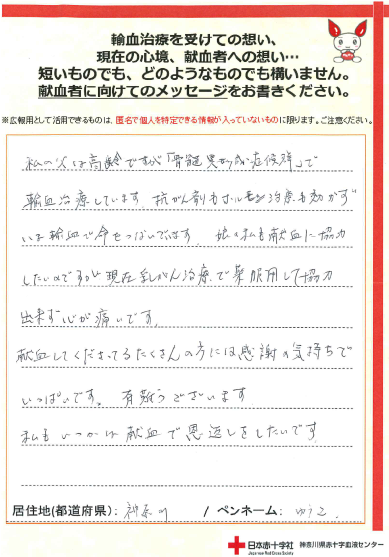 輸血治療を受けての想い、
現在の心境、献血者への想い…
短いものでも、どのようなものでも構いません。
献血者に向けてのメッセージをお書きください。
※広報用として活用できるものは、匿名で個人を特定できる情報が入っていないものに限ります。ご注意ください。
私の父は高齢ですが「骨髄異形成症候群」で
輸血治療しています。抗がん剤もホルモン治療も効かず
いま輸血で命をつないでいます。娘の私も献血に協力
したいのですが現在乳がん治療で薬服用して協力
出来ず心が痛いです。
献血してくださってるたくさんの方には感謝の気持ちで
いっぱいです。有難うございます
私もいつかは献血で恩返しをしたいです
居住地(都道府県): 神奈川 / ペンネーム: ゆうこ
日本赤十字社 神奈川県赤十字血液センター
Japanese Red Cross Society